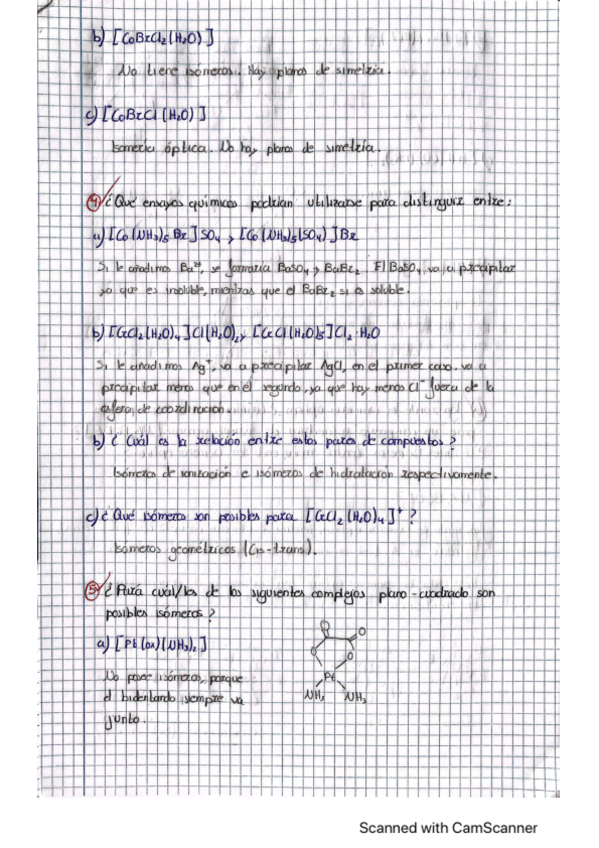 b) [CoBrCl₂(H₂O)]
No tiene isómeros. Hay planos de simetría.
c) [CoBrCl(H₂O)]
Isomería óptica. No hay planos de simetría.
4) ¿Qué ensayos químicos podrían utilizarse para distinguir entre:
a) [Co(NH₃)₅Br]SO₄ y [Co(NH₃)₅(SO₄)]Br
Si le añadimos Ba²⁺, se formaría BaSO₄ y BaBr₂. El BaSO₄ va a precipitar
ya que es insoluble, mientras que el BaBr₂ si es soluble.
b) [CrCl₂(H₂O)₄]Cl(H₂O)₂ y [CrCl(H₂O)₅]Cl₂·H₂O
Si le añadimos Ag⁺, va a precipitar AgCl, en el primer caso va a
precipitar menos que en el segundo, ya que hay menos Cl⁻ fuera de la
esfera de coordinación.
b) ¿Cuál es la relación entre estos pares de compuestos?
Isómeros de ionización e isómeros de hidratación respectivamente.
c) ¿Qué isómeros son posibles para [CrCl₂(H₂O)₄]⁺?
Isómeros geométricos (Cis-trans).
5) ¿Para cuál/les de los siguientes complejos plano-cuadrado son
posibles isómeros?
a) [Pt(ox)(NH₃)₂]
No posee isómeros, porque
el bidentando siempre va
junto.
O
O
O
O
Pt
NH₃ NH₃
Scanned with CamScanner